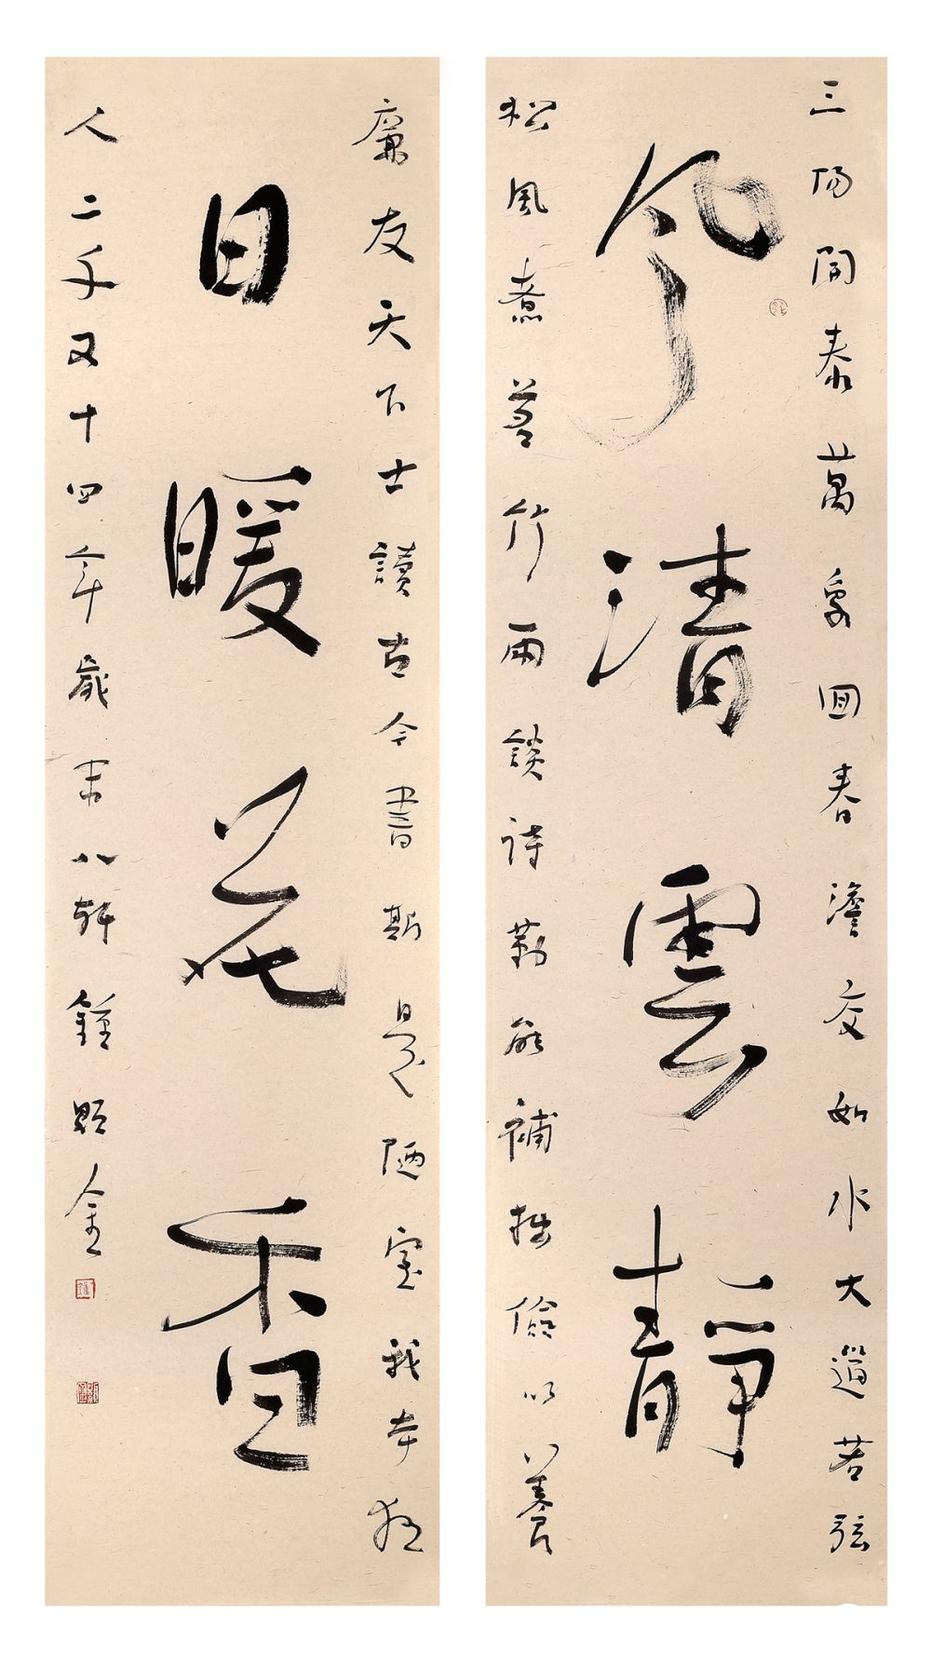 三陽開泰萬象回春澹交如水大道若弦
風清雲靜
松風煮茗竹雨談詩勤能補拙儉以養
廉友天下士讀古今書斯是陋室我本狂
日暖花香
人二千又十四年歲末八軒鍾顯金